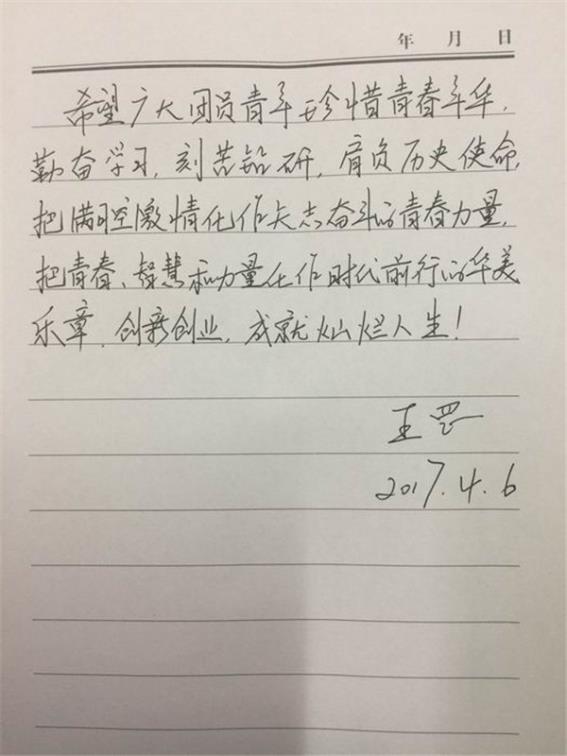 年 月 日
希望广大团员青年珍惜青春年华,
勤奋学习,刻苦钻研,肩负历史使命,
把满腔激情化作矢志奋斗的青春力量,
把青春、智慧和力量化作时代前行的华美
乐章,创新创业,成就灿烂人生!
王
2017.4.6